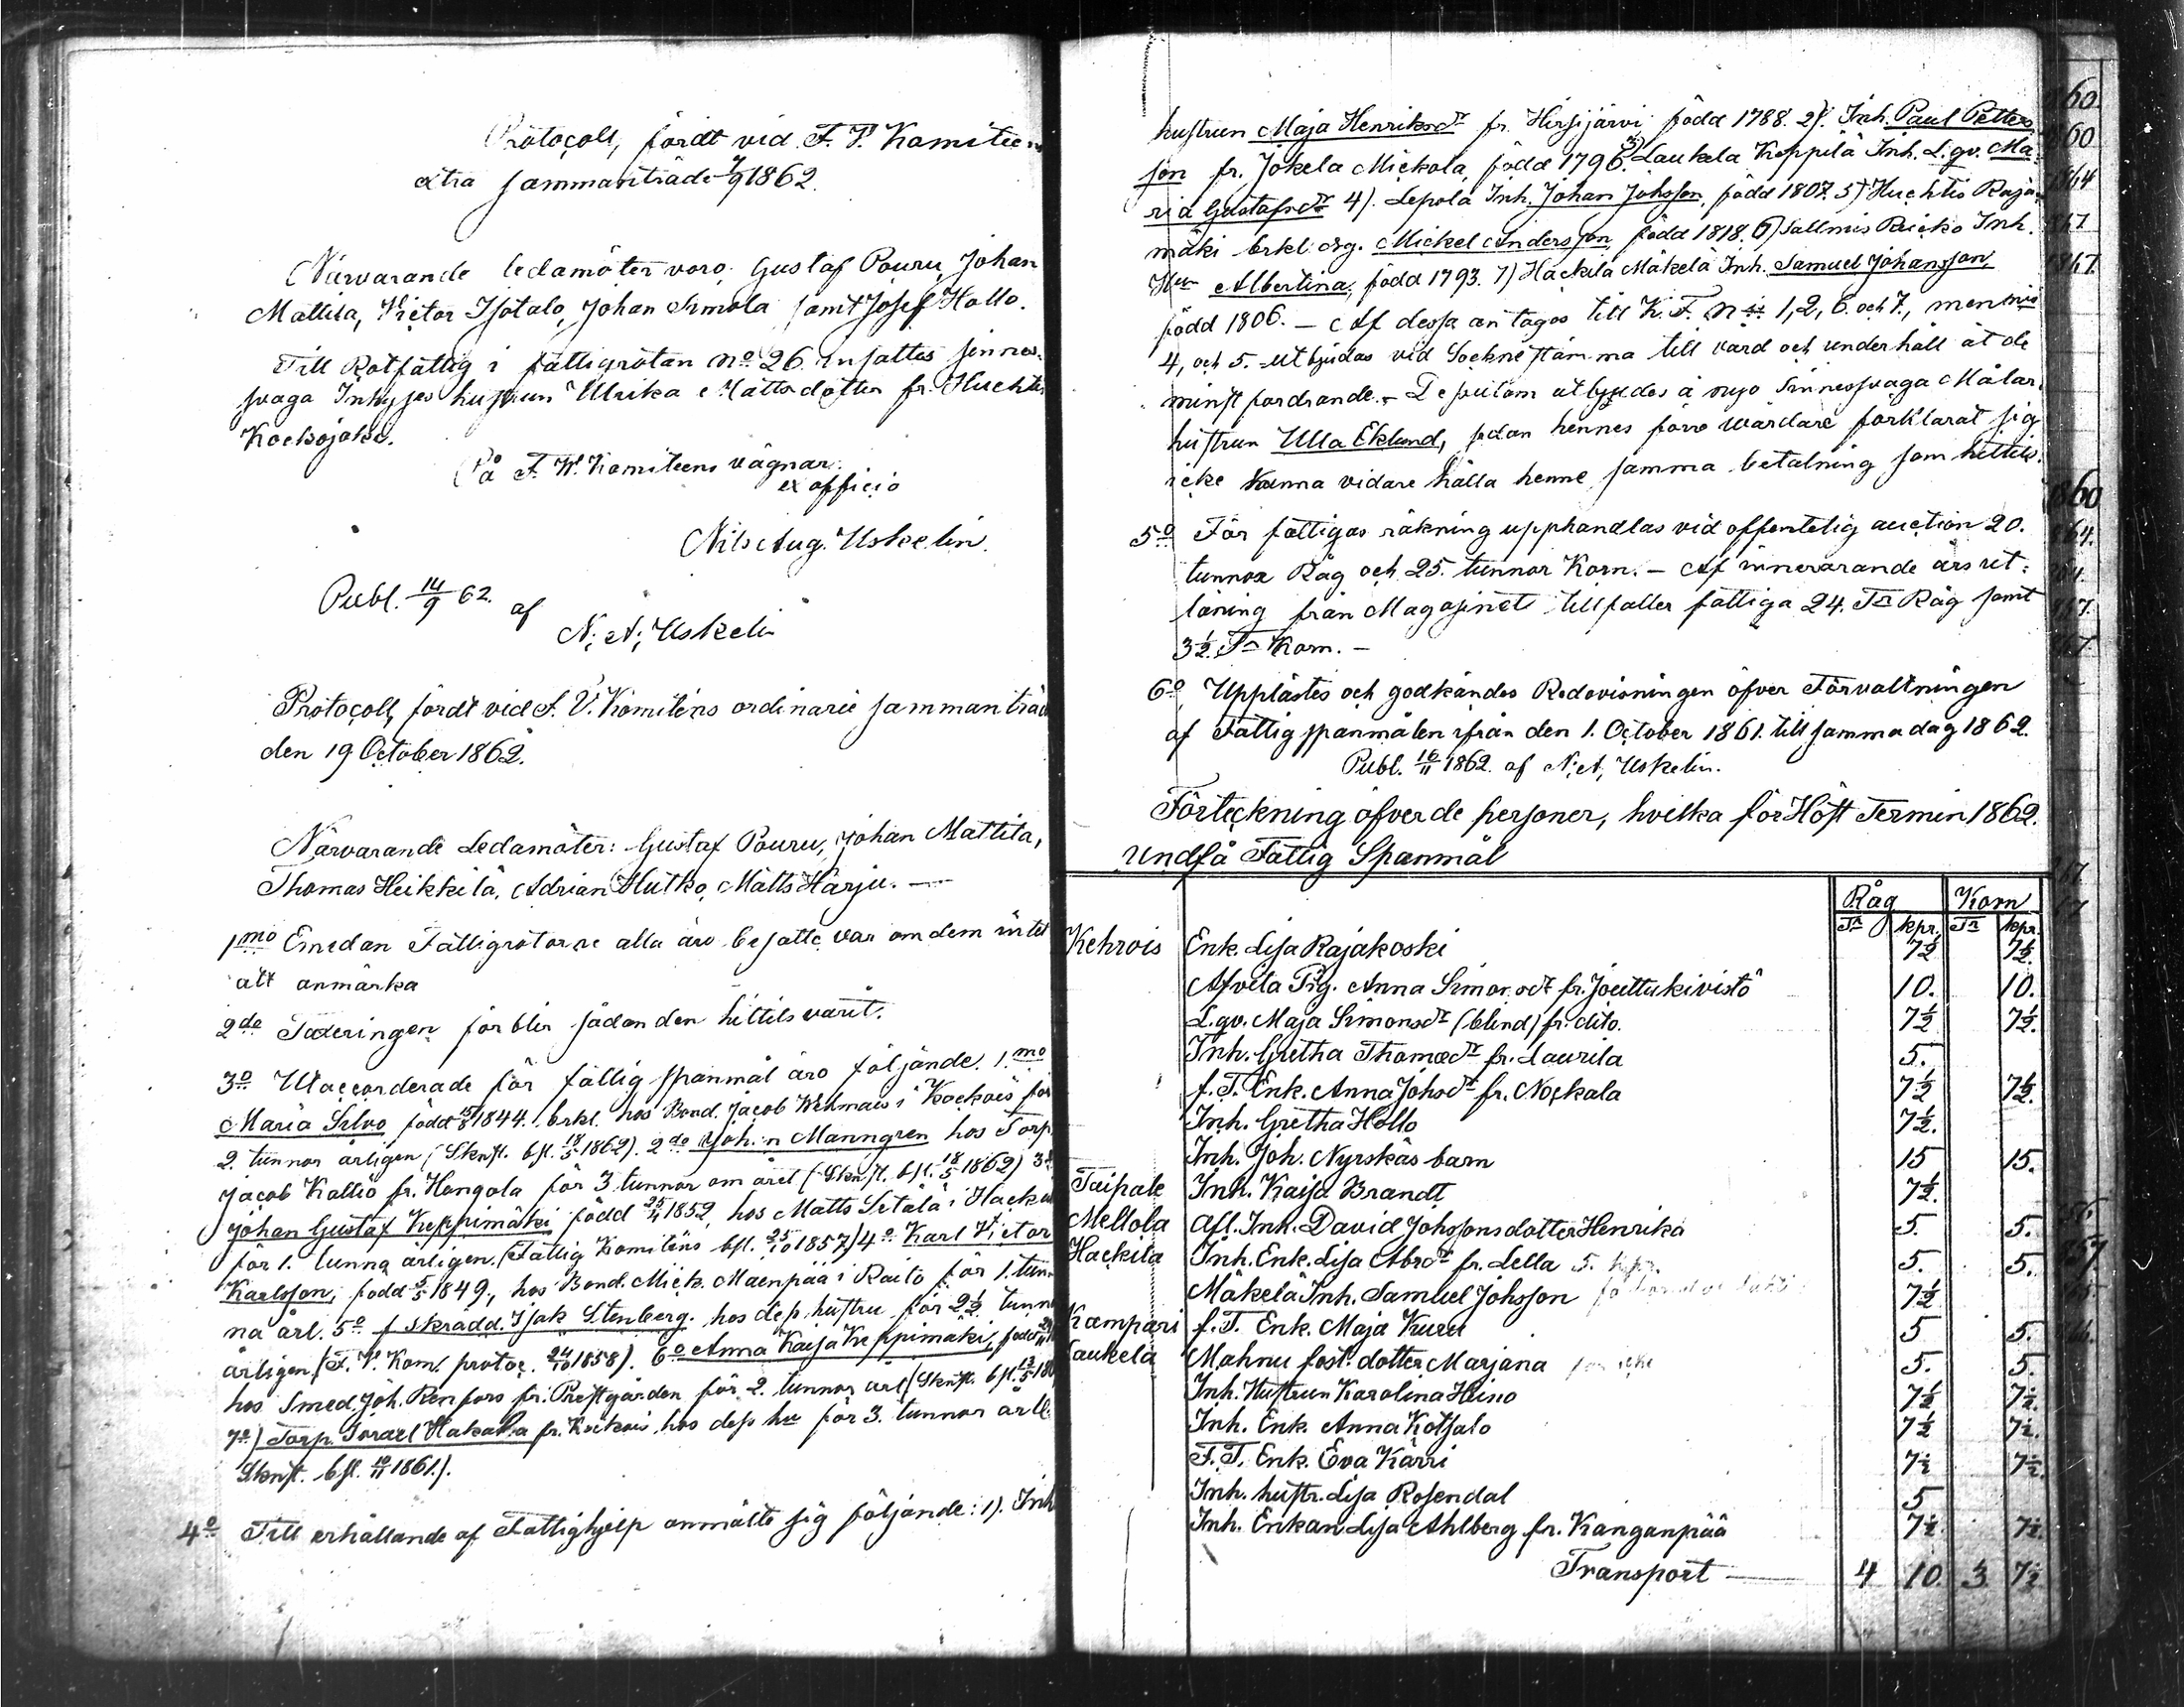 Protocoll, fördt vid F. V. Komiteens
extra sammanträde 7/9 1862.
Närvarande ledamöter voro: Gustaf Pouru, Johan
Mattila, Victor Isotalo, Johan Simola samt Josef Hollo.
Till Rotfattig i fattigrotan No 26. insattes sinnes-
svaga Inhyses hustrun Ulrika Mattsdotter fr. Huchtis
Kockojoki.
På F. W. Komiteens vägnar:
ex officio
Nils Aug. Uskelin.
Publ. 14/9 62. af
N; A; Uskelin
Protocoll, fördt vid F. V. Komiténs ordinarie sammanträde
den 19 October 1862.
Närvarande Ledamöter: Gustaf Pouru, Johan Mattila,
Thomas Heikkilä, Adrian Hutko, Matts Harju. —
1mo Emedan Fattigrotorne alla äro besatte, var om dem intet
att anmärka
2do Taxeringen förblir sådan den hittils varit.
3o Utaccorderade för fattig spanmål äro följande. 1.mo
Maria Silvo född 1844. brkl. hos Bond. Jacob Wehmais i Kockois för
2. tunnor årligen (Sknst. bsl. 18/5 1862). 2do Joh:n Manngren hos Torp.
Jacob Kallio fr. Hongola för 3 tunnor om året (Sknst. bsl. 18/5 1862) 3o
Johan Gustaf Keppimäki född 25/4 1852, hos Matts Setälä i Hackila
för 1. tunna årligen. (Fattig Komiténs bsl. 25/10 1857) 4o Karl Victor
Karlsson, född 5/5 1849, hos Bond. Mick. Mäenpää i Raito för 1. tun-
na årl. 5o f skrädd. Isak Stenberg. hos dess hustru för 2½ tunna
årligen (F. V. Kom. protoc. 24/10 1858). 6o Anna Kaisa Keppimäki, född
hos Smed. Joh. Renfors fr. Prestgården för 2. tunnor årl (Sknst. bsl.
7o) Torp. Israel Hakala fr. Kockois, hos dess hu för 3. tunnor årl.
Sknst. bsl. 10/11 1861).
4o Till erhållande af Fattighjelp anmälte sig följande: 1). Inh
hustrun Maja Henriksdr fr. Hirsijärvi, född 1788. 2). Inh. Paul Petters-
son fr. Jokela Mickola, född 1796. 3) Laukela Keppilä Inh. L.qv. Ma-
ria Gustafsdr 4). Lepola Inh. Johan Johsson, född 1807. 5) Huchtis Raja-
mäki brkl drg. Mickel Andersson, född 1818. 6) Sallmis Reicko Inh.
Hu Albertina, född 1793. 7) Hackila Mäkelä Inh. Samuel Johansson,
född 1806. — Af dessa antagos till K. F. N 1, 2, 6. och 7., men
4, och 5. utbjudas vid Sockne stämma till vård och underhåll åt de
minst fordrande. — Dessutom utbjudes å nyo Sinnessvaga Målar
hustrun Ulla Eklund, sedan hennes förre wårdare förklarat sig
icke kunna vidare hålla henne samma betalning som hittils.
5o För fattigas räkning upphandlas vid offentelig auction 20.
tunnor Råg och 25. tunnor Korn. — Af innevarande års ut-
låning från Magasinet tillfaller fattiga 24. Tr Råg samt
3½ Tr Korn. —
6o Upplästes och godkändes Redovisningen öfver Förvaltningen
af Fattig spanmålen ifrån den 1. October 1861. till samma dag 1862.
Publ. 16/11 1862. af N; A; Uskelin.
Förteckning öfver de personer, hvilka för Höst Termin 1862.
undfå Fattig Spanmål
Råg Korn
Tr kpr. Tr kpr.
Kehrois Enk. Lisa Rajakoski 7½ 7½.
Afvita Pig. Anna Simonsdr fr. Jouttukivistö 10. 10.
L.qv. Maja Simonsdr (blind) fr. dito. 7½ 7½.
Inh. Gretha Thomædr fr. Laurila 5.
f. T. Enk. Anna Johsdr fr. Nockala 7½ 7½.
Inh. Gretha Hollo 7½.
Inh. Joh. Nyrskäs barn 15 15.
Taipale Inh. Kaisa Brandt 7½.
Mellola Afl. Inh. David Johssons dotter Henrika 5. 5.
Hackila Inh. Enk. Lisa Abrsdr fr. Lella 5. kpr. 5. 5.
Mäkelä Inh. Samuel Johsson 7½
Kampari f. T. Enk. Maja Kuru 5 5.
Laukela Mahnu fost. dotter Marjana får icke 5. 5.
Inh. Hustrun Karolina Heino 7½ 7½.
Inh. Enk. Anna Kotsalo 7½ 7½.
F. T. Enk. Eva Kärri 7½ 7½.
Inh. hustr. Lisa Rosendal 5
Inh. Enkan Lisa Ahlberg fr. Kanganpää 7½ 7½.
Transport — 4 10. 3 7½